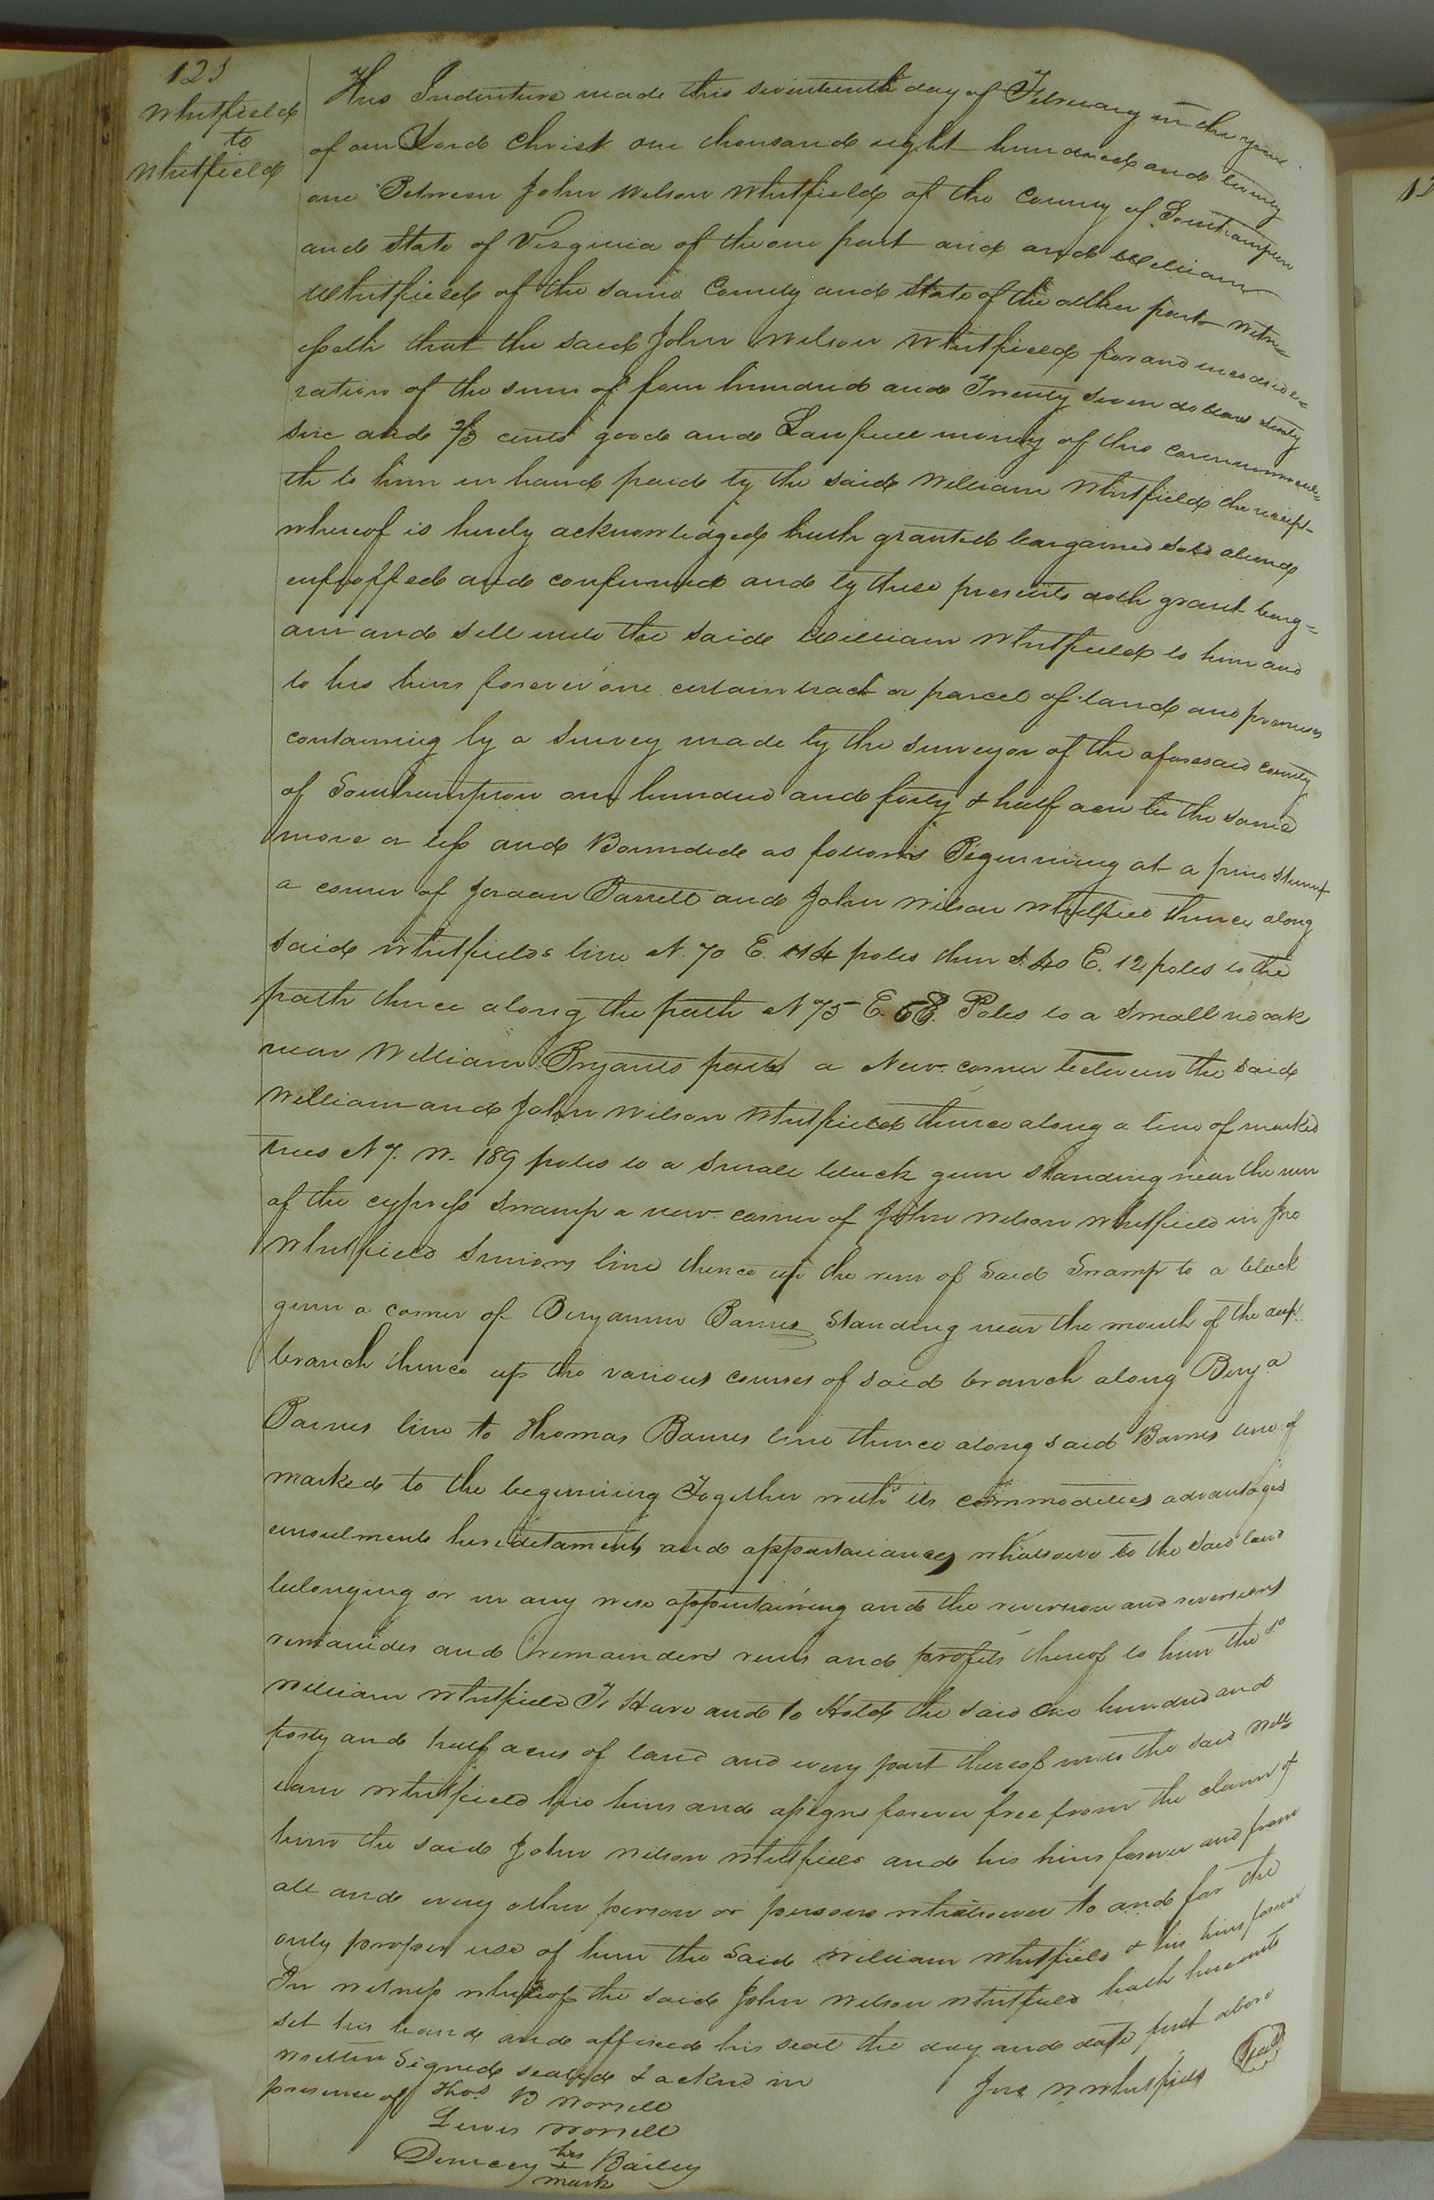 125
Whitfield
to
Whitfield
This Indenture made this seventeenth day of February in the year
of our Lord Christ one thousand eight hundred and twenty
one Between John Wilson Whitfield of the County of Southampton
and State of Virginia of the one part and and William
Whitfield of the same County and State of the other part Witne
sseth that the said John Wilson Whitfield for and in conside=
ration of the sum of four hundred and Twenty seven dollars sixty
six and 2/3 cents good and Lawfull money of this commonweal=
th to him in hand paid by the said William Whitfield the receipt
whereof is hereby acknowledged hath granted bargained sold aliend
enfeoffed and confirmed and by these presents doth grant barg=
ain and sell unto the said William Whitfield to him and
to his heirs forever one certain tract or parcel of land and premises
containing by a survey made by the surveyor of the aforesaid county
of Southampton one hundred and forty & half acre be the same
more or less and Bounded as follows Beginning at a pine stump
a corner of Jordan Barrett and John Wilson Whitfield thence along
said Whitfields line N. 70 E. 114 poles then S. 40 E. 12 poles to the
path thence along the path N 75 E. 58. Poles to a small red oak
near William Bryants path a New corner between the said
William and John Wilson Whitfield thence along a line of marked
trees N 7. W. 189 poles to a small black gum standing near the run
of the cypress swamp a new corner of John Wilson Whitfield in Jno
Whitfield Seniors line thence up the run of said Swamp to a black
gum a corner of Benjamin Barnes standing near the mouth of the deep
branch thence up the various courses of said branch along Benja
Barnes line to Thomas Barnes line thence along said Barnes line of
marked to the beginning Together with its commodities advantages
emoulments hereditaments and appurtanances whatsoever to the said land
belonging or in any wise appertaining and the reversion and reversions
remainder and remainders rents and profits thereof to him the sd
William Whitfield To Have and to Hold the said One hundred and
forty and half acres of land and every part thereof unto the said Willi
iam Whitfield his heirs and assigns forever free from the claim of
him the said John Wilson Whitfield and his heirs forever and from
all and every other person or persons whatsoever to and for the
only proper use of him the said William Whitfield & his heirs forever
In witness whereof the said John Wilson Whitfield hath hereunto
set his hand and affixed his seal the day and date first above
written Signed sealed & acknd in
presence of Thos B Worrell
Jno W Whitfield Seal
Lewis Worrell
Demcey his Bailey
mark